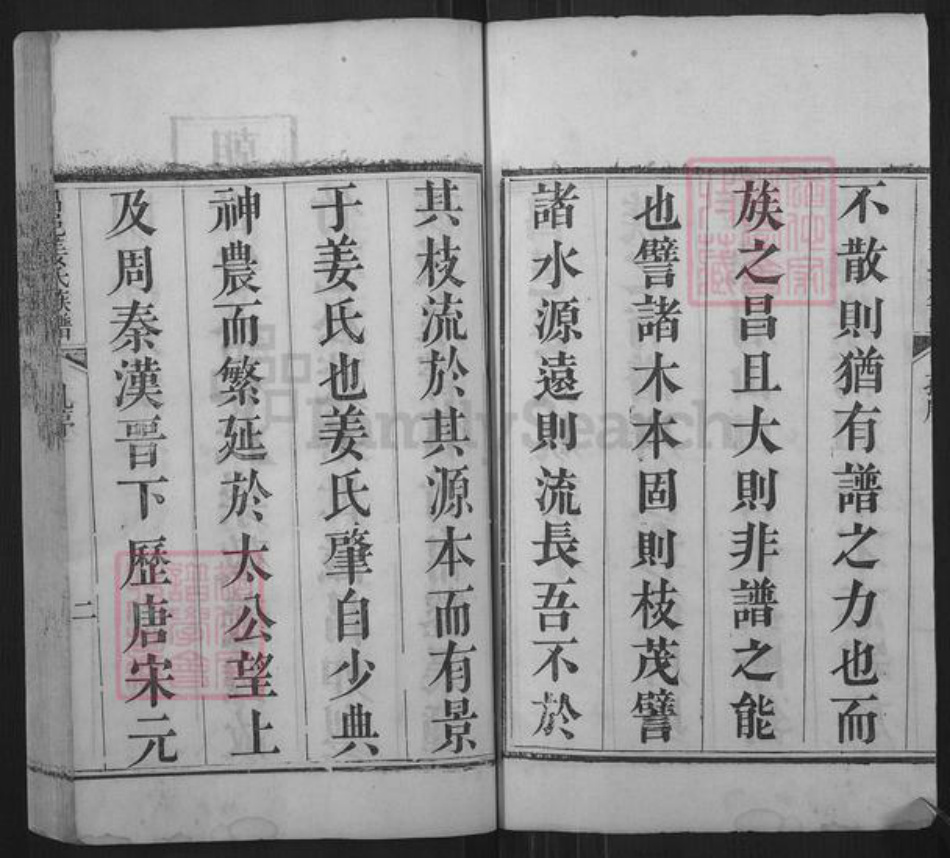 不散則猶有譜之力也而
族之昌且大則非譜之能
也譬諸木本固則枝茂譬
諸水源遠則流長吾不於
其枝流於其源本而有景
于姜氏也姜氏肇自少典
神農而繁延於太公望上
及周秦漢晉下歷唐宋元
二
FamilySearch